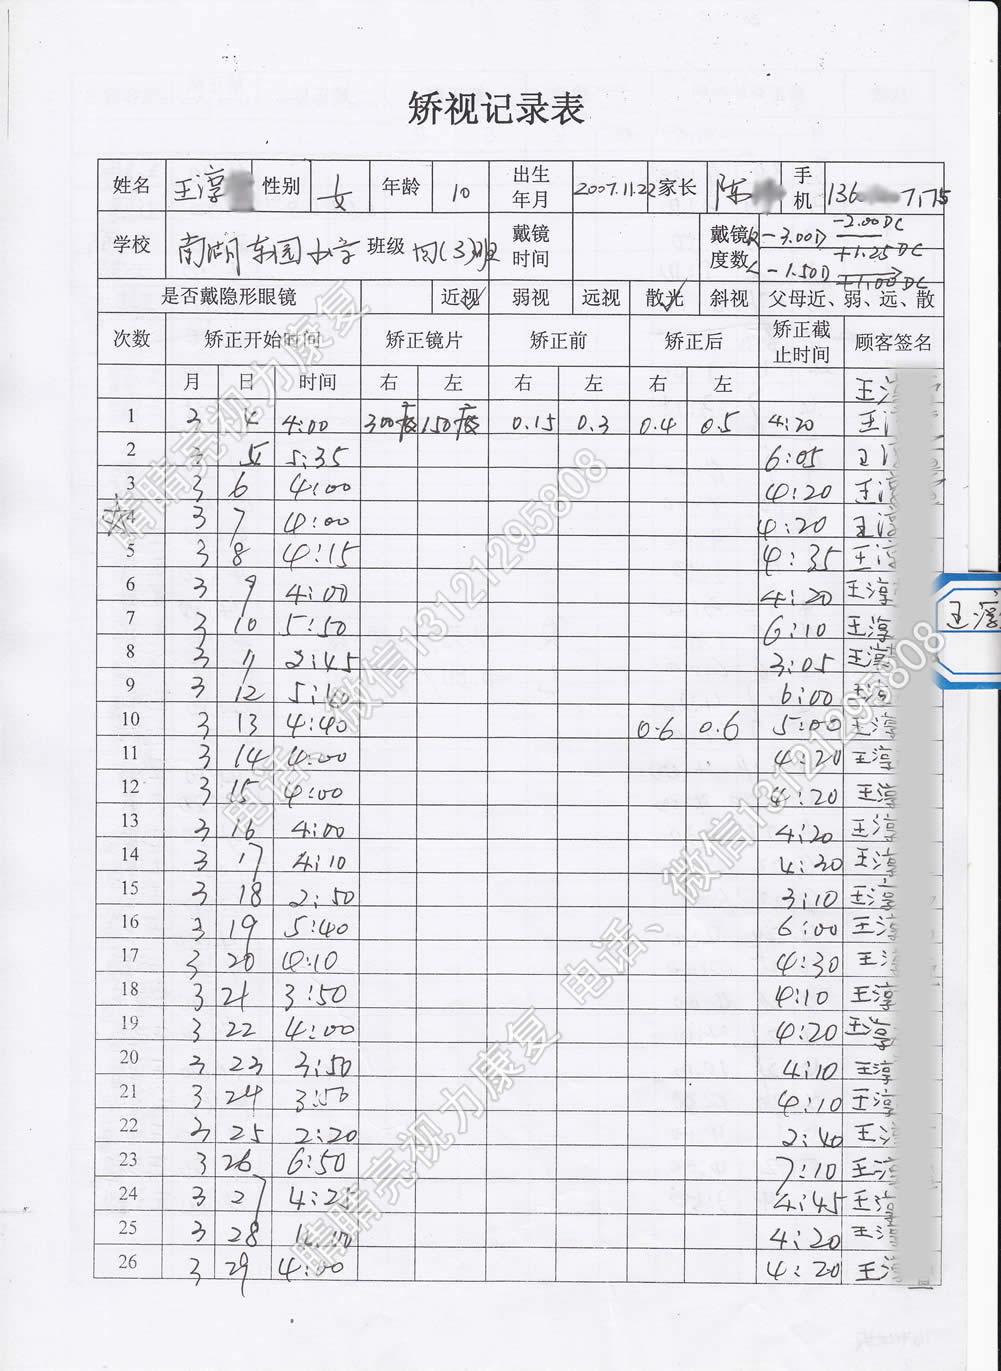 矫视记录表
姓名 王淳 性别 女 年龄 10 出生年月 2007.11.22 家长 陈 手机 136 7175
学校 南湖东园小学 班级 四(3)班 戴镜时间 戴镜度数 R -3.00D -2.00DC +1.25DC
L -1.50D +1.00DC
是否戴隐形眼镜 近视✓ 弱视 远视 散光✓ 斜视 父母近、弱、远、散
次数 矫正开始时间 矫正镜片 矫正前 矫正后 矫正截止时间 顾客签名
月 日 时间 右 左 右 左 右 左 王淳
1 3 4 4:00 300度 150度 0.15 0.3 0.4 0.5 4:20 王淳
2 3 5 5:35 6:05 王淳
3 3 6 4:00 4:20 王淳
☆4 3 7 4:00 4:20 王淳
5 3 8 4:15 4:35 王淳
6 3 9 4:00 4:20 王淳
7 3 10 5:50 6:10 王淳
8 3 11 2:45 3:05 王淳
9 3 12 5:40 6:00 王淳
10 3 13 4:40 0.6 0.6 5:00 王淳
11 3 14 4:00 4:20 王淳
12 3 15 4:00 4:20 王淳
13 3 16 4:00 4:20 王淳
14 3 17 4:10 4:30 王淳
15 3 18 2:50 3:10 王淳
16 3 19 5:40 6:00 王淳
17 3 20 4:10 4:30 王淳
18 3 21 3:50 4:10 王淳
19 3 22 4:00 4:20 王淳
20 3 23 3:50 4:10 王淳
21 3 24 3:50 4:10 王淳
22 3 25 2:20 2:40 王淳
23 3 26 6:50 7:10 王淳
24 3 27 4:25 4:45 王淳
25 3 28 4:20 王淳
26 3 29 4:00 4:20 王淳
王淳
睛睛亮视力康复 电话、微信13121295808
睛睛亮视力康复 电话、微信13121295808